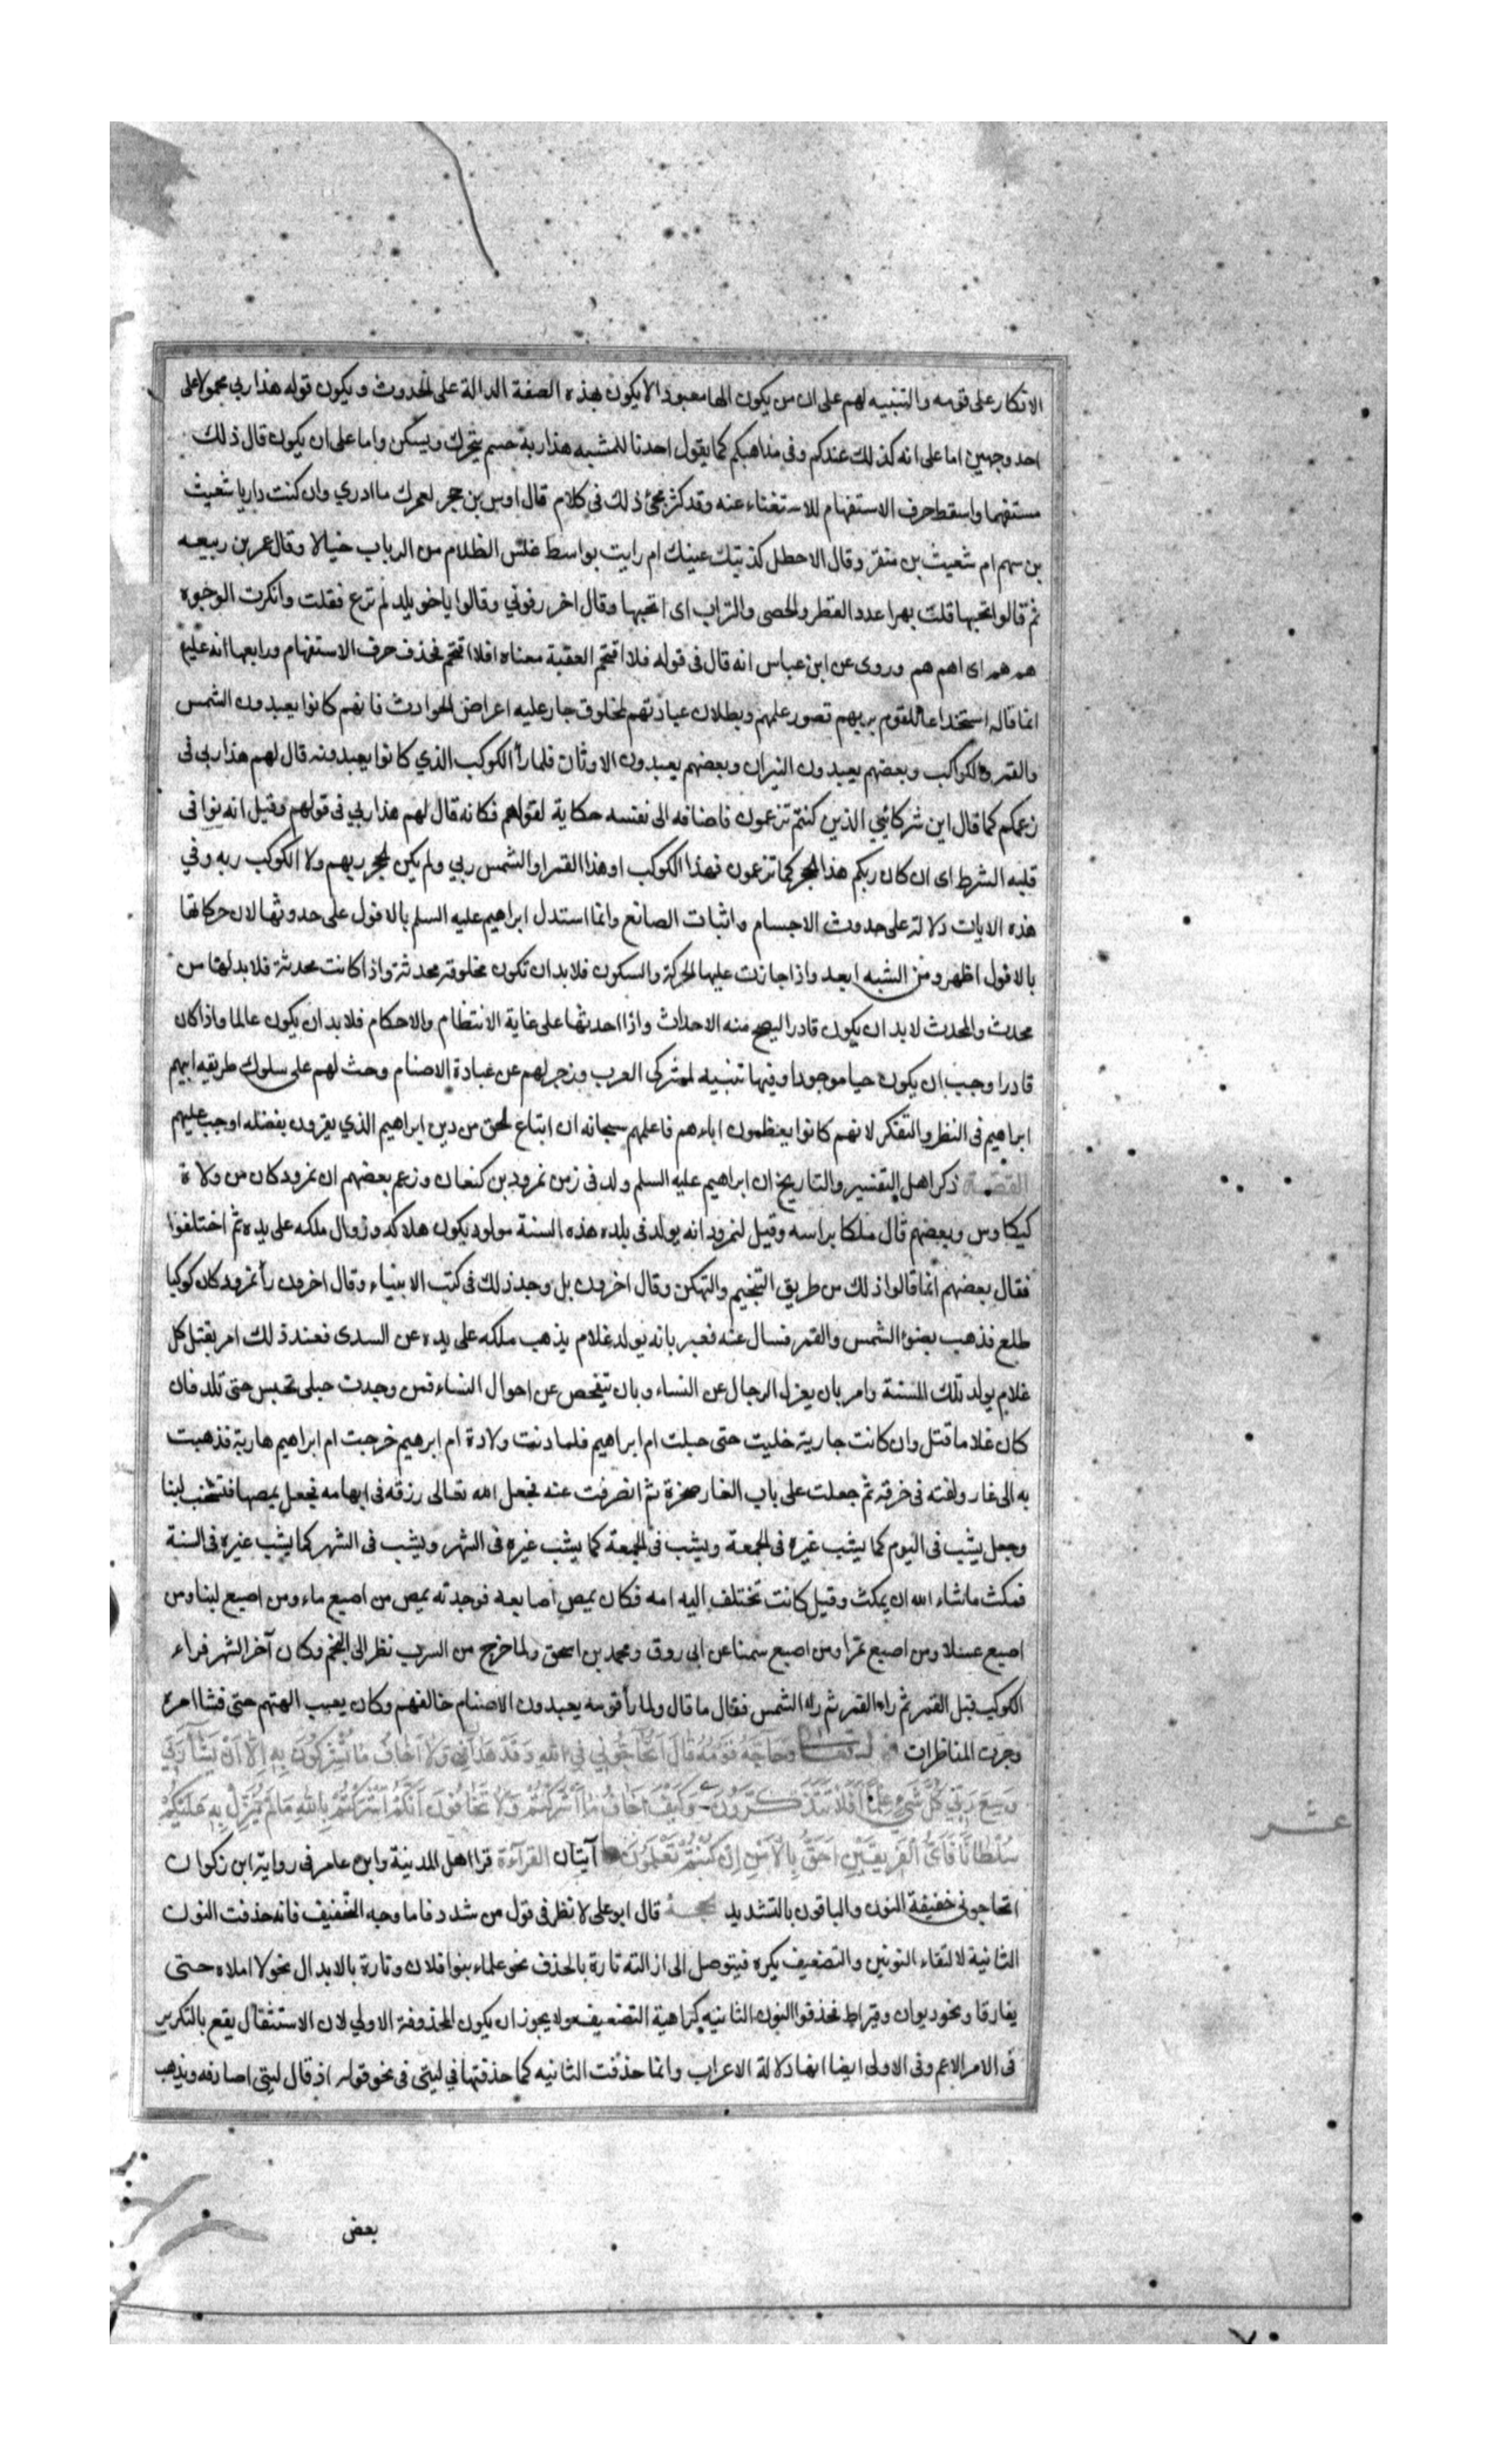 الانكار على قومه والتنبيه لهم على ان من يكون الها معبودا لا يكون بهذه الصفة الدالة على الحدوث ويكون قوله هذا ربي محمولا على
احد وجهين اما على انه كذلك عندكم وفى مذاهبكم كما يقول احدنا للمشبه هذا ربه جسم يتحرك ويسكن واما على ان يكون قال ذلك
مستفهما واسقط حرف الاستفهام للاستغناء عنه وقد كثر مجئ ذلك فى كلام قال اوس بن حجر لعمرك ما ادري وان كنت داريا شعيث
بن سهم ام شعيث بن منقر وقال الاحطل كذبتك عينك ام رايت بواسط غلس الظلام من الرباب خيالا وقال عمر بن ربيعه
ثم قالوا تحبها قلت بهرا عدد القطر والحصى والتراب اى اتحبها وقال اخر رفوني وقالوا ياخويلد لم ترع فقلت وانكرت الوجوه
هم هم اى اهم هم وروى عن ابن عباس انه قال فى قوله فلا اقتحم العقبة معناه افلا اقتحم فحذف حرف الاستفهام ورابعها انه عليع
انما قاله استخداعا للقوم يريهم قصور علمهم وبطلان عبادتهم لمخلوق جار عليه اعراض الحوادث فانهم كانوا يعبدون الشمس
والقمر والكواكب وبعضهم يعبدون النيران وبعضهم يعبدون الاوثان فلما رأ الكوكب الذي كانوا يعبدونه قال لهم هذا ربى فى
زعمكم كما قال اين شركائي الذين كنتم تزعمون فاضافه الى نفسه حكاية لقولهم فكانه قال لهم هذا ربي فى قولهم وقيل انه نوا فى
قلبه الشرط اى ان كان ربكم هذا الحجر كما تزعمون فهذا الكوكب او هذا القمر او الشمس ربي ولم يكن الحجر ربهم ولا الكوكب ربه وفي
هذه الايات دلالة على حدوث الاجسام واثبات الصانع وانما استدل ابراهيم عليه السلم بالافول على حدوثها لان حركاتها
بالافول اظهر ومن الشبه ابعد واذا جازت عليها الحركة والسكون فلا بد ان تكون مخلوقة محدثة واذا كانت محدثة فلا بد لها من
محدث والمحدث لا بد ان يكون قادرا ليصح منه الاحداث واذا احدثها على غاية الانتظام والاحكام فلا بد ان يكون عالما واذا كان
قادرا وجب ان يكون حيا موجودا وفيها تنبيه لمشركى العرب وزجر لهم عن عبادة الاصنام وحث لهم على سلوك طريقه ابيهم
ابراهيم فى النظر والتفكر لانهم كانوا يعظمون اباءهم فاعلمهم سبحانه ان اتباع الحق من دين ابراهيم الذي يقرون بفضله اوجب عليهم
القصة ذكر اهل التفسير والتاريخ ان ابراهيم عليه السلم ولد فى زمن نمرود بن كنعان وزعم بعضهم ان نمرود كان من ولاة
كيكاوس وبعضهم قال ملكا براسه وقيل لنمرود انه يولد فى بلده هذه السنة مولود يكون هلاكه وزوال ملكه على يده ثم اختلفوا
فقال بعضهم انما قالوا ذلك من طريق التنجيم والتهكن وقال اخرون بل وجد ذلك فى كتب الانبياء وقال اخرون رأ نمرود كان كوكبا
طلع فذهب بضوء الشمس والقمر فسال عنه فعبر بانه يولد غلام يذهب ملكه على يده عن السدى فعند ذلك امر بقتل كل
غلام يولد تلك السنة وامر بان يعزل الرجال عن النساء وبان يتفحص عن احوال النساء فمن وجدت حبلى تحبس حتى تلد فان
كان غلاما قتل وان كانت جارية خليت حتى حبلت ام ابراهيم فلما دنت ولادة ام ابرهيم خرجت ام ابراهيم هاربة فذهبت
به الى غار ولفته فى خرقة ثم جعلت على باب الغار صخرة ثم انصرفت عنه فجعل الله تعالى رزقه فى ابهامه فجعل يمصها فتشخب لبنا
وجعل يشب فى اليوم كما يشب غيره فى الجمعة ويشب فى الجمعة كما يشب غيره فى الشهر ويشب فى الشهر كما يشب غيره فى السنة
فمكث ماشاء الله ان يمكث وقيل كانت تختلف اليه امه فكان يمص اصابعه فوجدته يمص من اصبع ماء ومن اصبع لبنا ومن
اصبع عسلا ومن اصبع تمرا ومن اصبع سمنا عن ابى روق ومحمد بن اسحق ولما خرج من السرب نظر الى النجم وكان آخر الشهر فراء
الكوكب قبل القمر ثم راه القمر ثم راه الشمس فقال ما قال ولما رأ قومه يعبدون الاصنام خالفهم وكان يعيب الهتهم حتى فشا امره
وجرت المناظرات وَحَاجَّهُ قَوْمُهُ قَالَ أَتُحَاجُّونِّي فِي اللهِ وَقَدْ هَدَانِي وَلَا أَخَافُ مَا تُشْرِكُونَ بِهِ إِلَّا أَنْ يَشَاءَ رَبِّي
وَسِعَ رَبِّي كُلَّ شَيْءٍ عِلْمًا أَفَلَا تَتَذَكَّرُونَ وَكَيْفَ أَخَافُ مَا أَشْرَكْتُمْ وَلَا تَخَافُونَ أَنَّكُمْ أَشْرَكْتُمْ بِاللهِ مَا لَمْ يُنَزِّلْ بِهِ عَلَيْكُمْ
سُلْطَانًا فَأَيُّ الْفَرِيقَيْنِ أَحَقُّ بِالْأَمْنِ إِنْ كُنْتُمْ تَعْلَمُونَ آيتان القرآءة قرا اهل المدينة وابن عامر فى رواية ابن ذكوان
اتحاجونى خفيفة النون والباقون بالتشديد قال ابو على لا نظر فى قول من شدد فاما وجه التخفيف فانه حذفت النون
الثانية لالتقاء النونين والتضعيف يكره فيتوصل الى ازالته تارة بالحذف نحو علماء بنوا فلان وتارة بالابدال نحو لا املاه حتى
يفارقا ونحو ديوان وقيراط فحذفوا النون الثانيه كراهية التضعيف ولا يجوز ان يكون المحذوفة الاولي لان الاستثقال يقع بالتكرير
فى الامر الاعم وفى الاولى ايضا انها دلالة الاعراب وانما حذفت الثانيه كما حذفتها في ليتى فى نحو قوله اذ قال ليتى اصادفه ويذهب
بعض
عشر